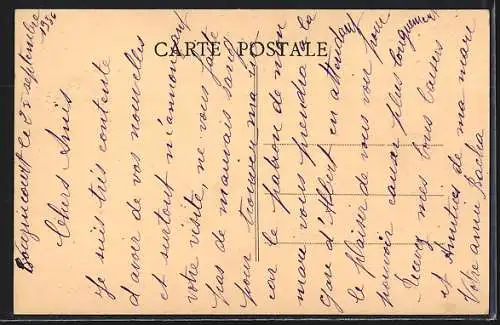 CARTE POSTALE
le 25 septembre
1936
Chers Amis
Je suis très contente
d'avoir de vos nouvelles
et surtout m'annonçant
votre visite, ne vous faite
pas de mauvais sang
pour
car le patron de mon
mari vous prendra à la
gare d'Albert en attendant
le plaisir de vous voir pour
pouvoir causer plus longuement
Recevez mes bons baisers
et Amitiés de ma mari
Votre amie